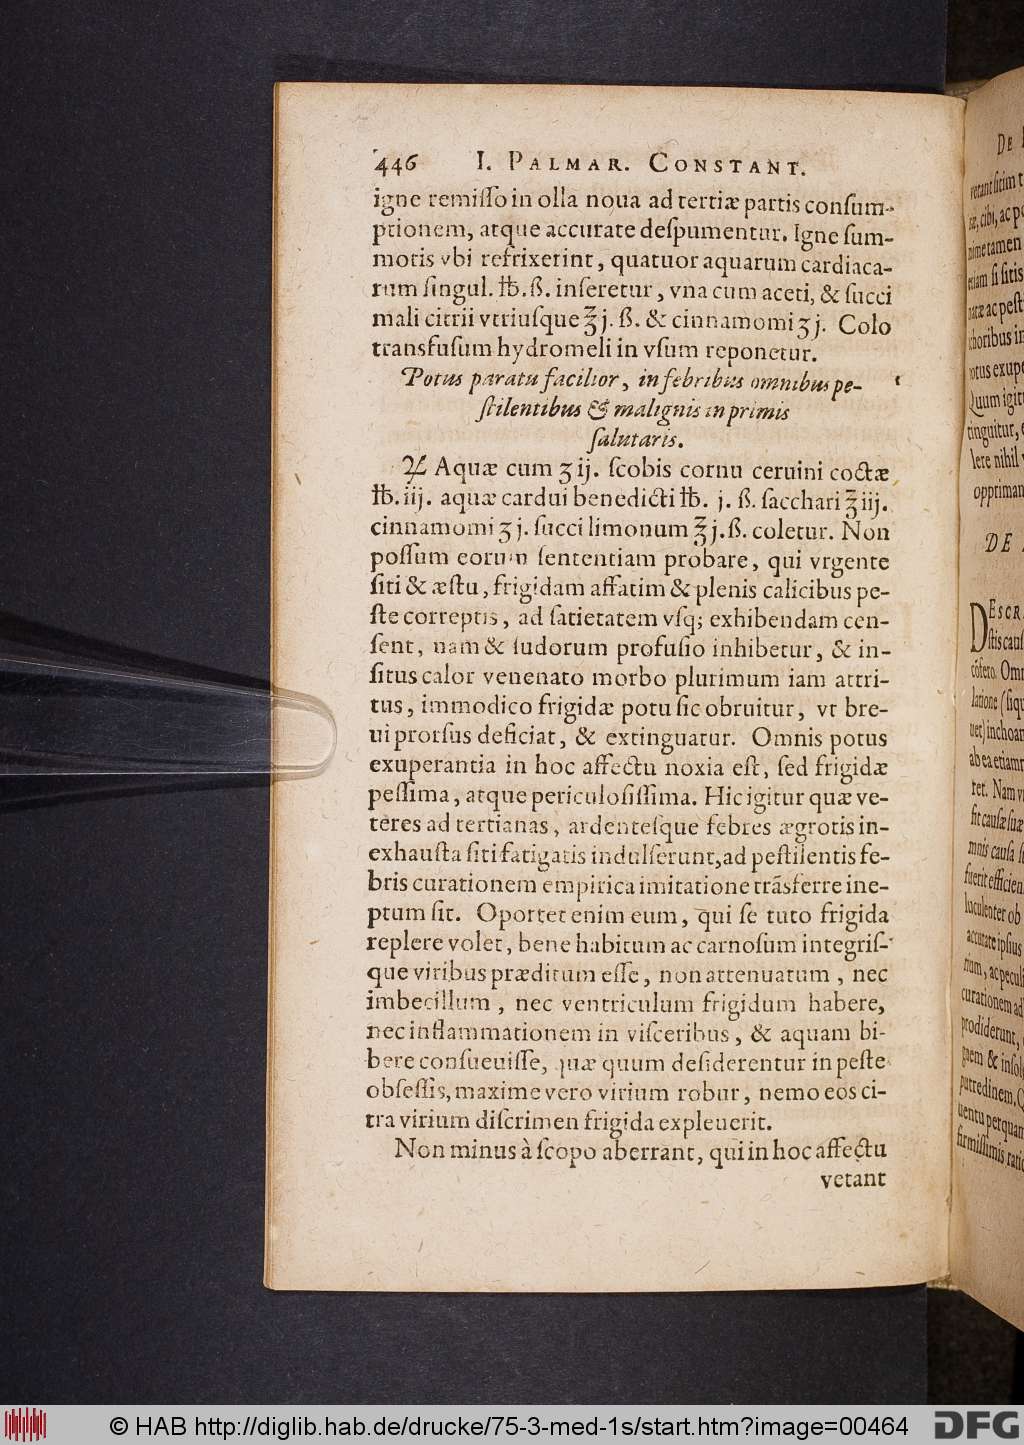 446 I. PALMAR. CONSTANT.
igne remiſſo in olla noua ad tertiæ partis conſum-
ptionem, atque accurate deſpumentur. Igne ſum-
motis vbi refrixerint, quatuor aquarum cardiaca-
rum ſingul. ℔. ß. inſeretur, vna cum aceti, & ſucci
mali citrii vtriuſque ℥ j. ß. & cinnamomi ʒ j. Colo
transfuſum hydromeli in vſum reponetur.
Potus paratu facilior, in febribus omnibus pe-
ſtilentibus & malignis in primis
ſalutaris.
♃ Aquæ cum ʒ ij. ſcobis cornu ceruini coctæ
℔. iij. aquæ cardui benedicti ℔. j. ß. ſacchari ℥ iij.
cinnamomi ʒ j. ſucci limonum ℥ j. ß. coletur. Non
poſſum eorum ſententiam probare, qui vrgente
ſiti & æſtu, frigidam affatim & plenis calicibus pe-
ſte correptis, ad ſatietatem vſq; exhibendam cen-
ſent, nam & ſudorum profuſio inhibetur, & in-
ſitus calor venenato morbo plurimum iam attri-
tus, immodico frigidæ potu ſic obruitur, vt bre-
ui prorſus deficiat, & extinguatur. Omnis potus
exuperantia in hoc affectu noxia eſt, ſed frigidæ
peſſima, atque periculoſiſſima. Hic igitur quæ ve-
teres ad tertianas, ardenteſque febres ægrotis in-
exhauſta ſiti fatigatis indulſerunt, ad peſtilentis fe-
bris curationem empirica imitatione trãsferre ine-
ptum ſit. Oportet enim eum, qui ſe tuto frigida
replere volet, bene habitum ac carnoſum integriſ-
que viribus præditum eſſe, non attenuatum, nec
imbecillum, nec ventriculum frigidum habere,
nec inflammationem in viſceribus, & aquam bi-
bere conſueuiſſe, quæ quum deſiderentur in peſte
obſeſſis, maxime vero virium robur, nemo eos ci-
tra virium diſcrimen frigida expleuerit.
Non minus à ſcopo aberrant, qui in hoc affectu
vetant
DE
vetant ſitim
cibi, ac
tamen
etiam ſi ſitis
ac peſt
Quum igit
tinguitur,
lere nihil
DE
DESCR
ſtis cauſ
Omn
latione (ſiqu
inchoar
ab ea etiam
ret. Nam
mnis cauſa
luculenter ob
accurate ipſius
curationem ad
prodiderunt,
putredinem.
firmiſſimis
© HAB http://diglib.hab.de/drucke/75-3-med-1s/start.htm?image=00464
DFG